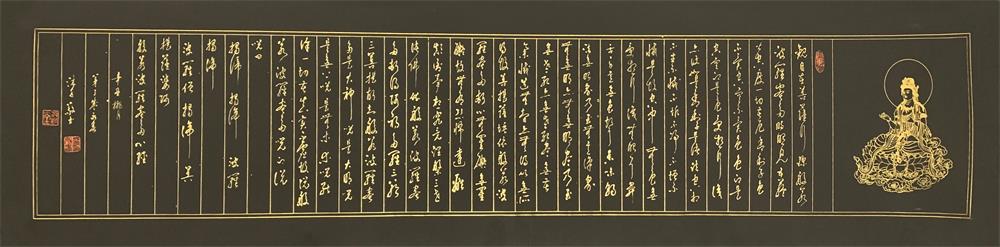 觀自在菩薩行深般若
波羅蜜多時照見五蘊
皆空度一切苦厄舍利子色
不異空空不異色色即是
空空即是色受想行識
亦復如是舍利子是諸法空相
不生不滅不垢不淨不增不
減是故空中無色無
受想行識無眼耳鼻
舌身意無色聲香味觸
法無眼界乃至無意識界
無無明亦無無明盡乃至
無老死亦無老死盡無苦
集滅道無智亦無得以無所
得故菩提薩埵依般若波
羅蜜多故心無罣礙無罣
礙故無有恐怖遠離
顛倒夢想究竟涅槃三世
諸佛依般若波羅蜜
多故得阿耨多羅三藐
三菩提故知般若波羅蜜
多是大神咒是大明咒
是無上咒是無等等咒能
除一切苦真實不虛故說般
若波羅蜜多咒即說
咒曰
揭諦 揭諦 波羅
揭諦
波羅僧揭諦 菩
提薩婆訶
般若波羅蜜多心經